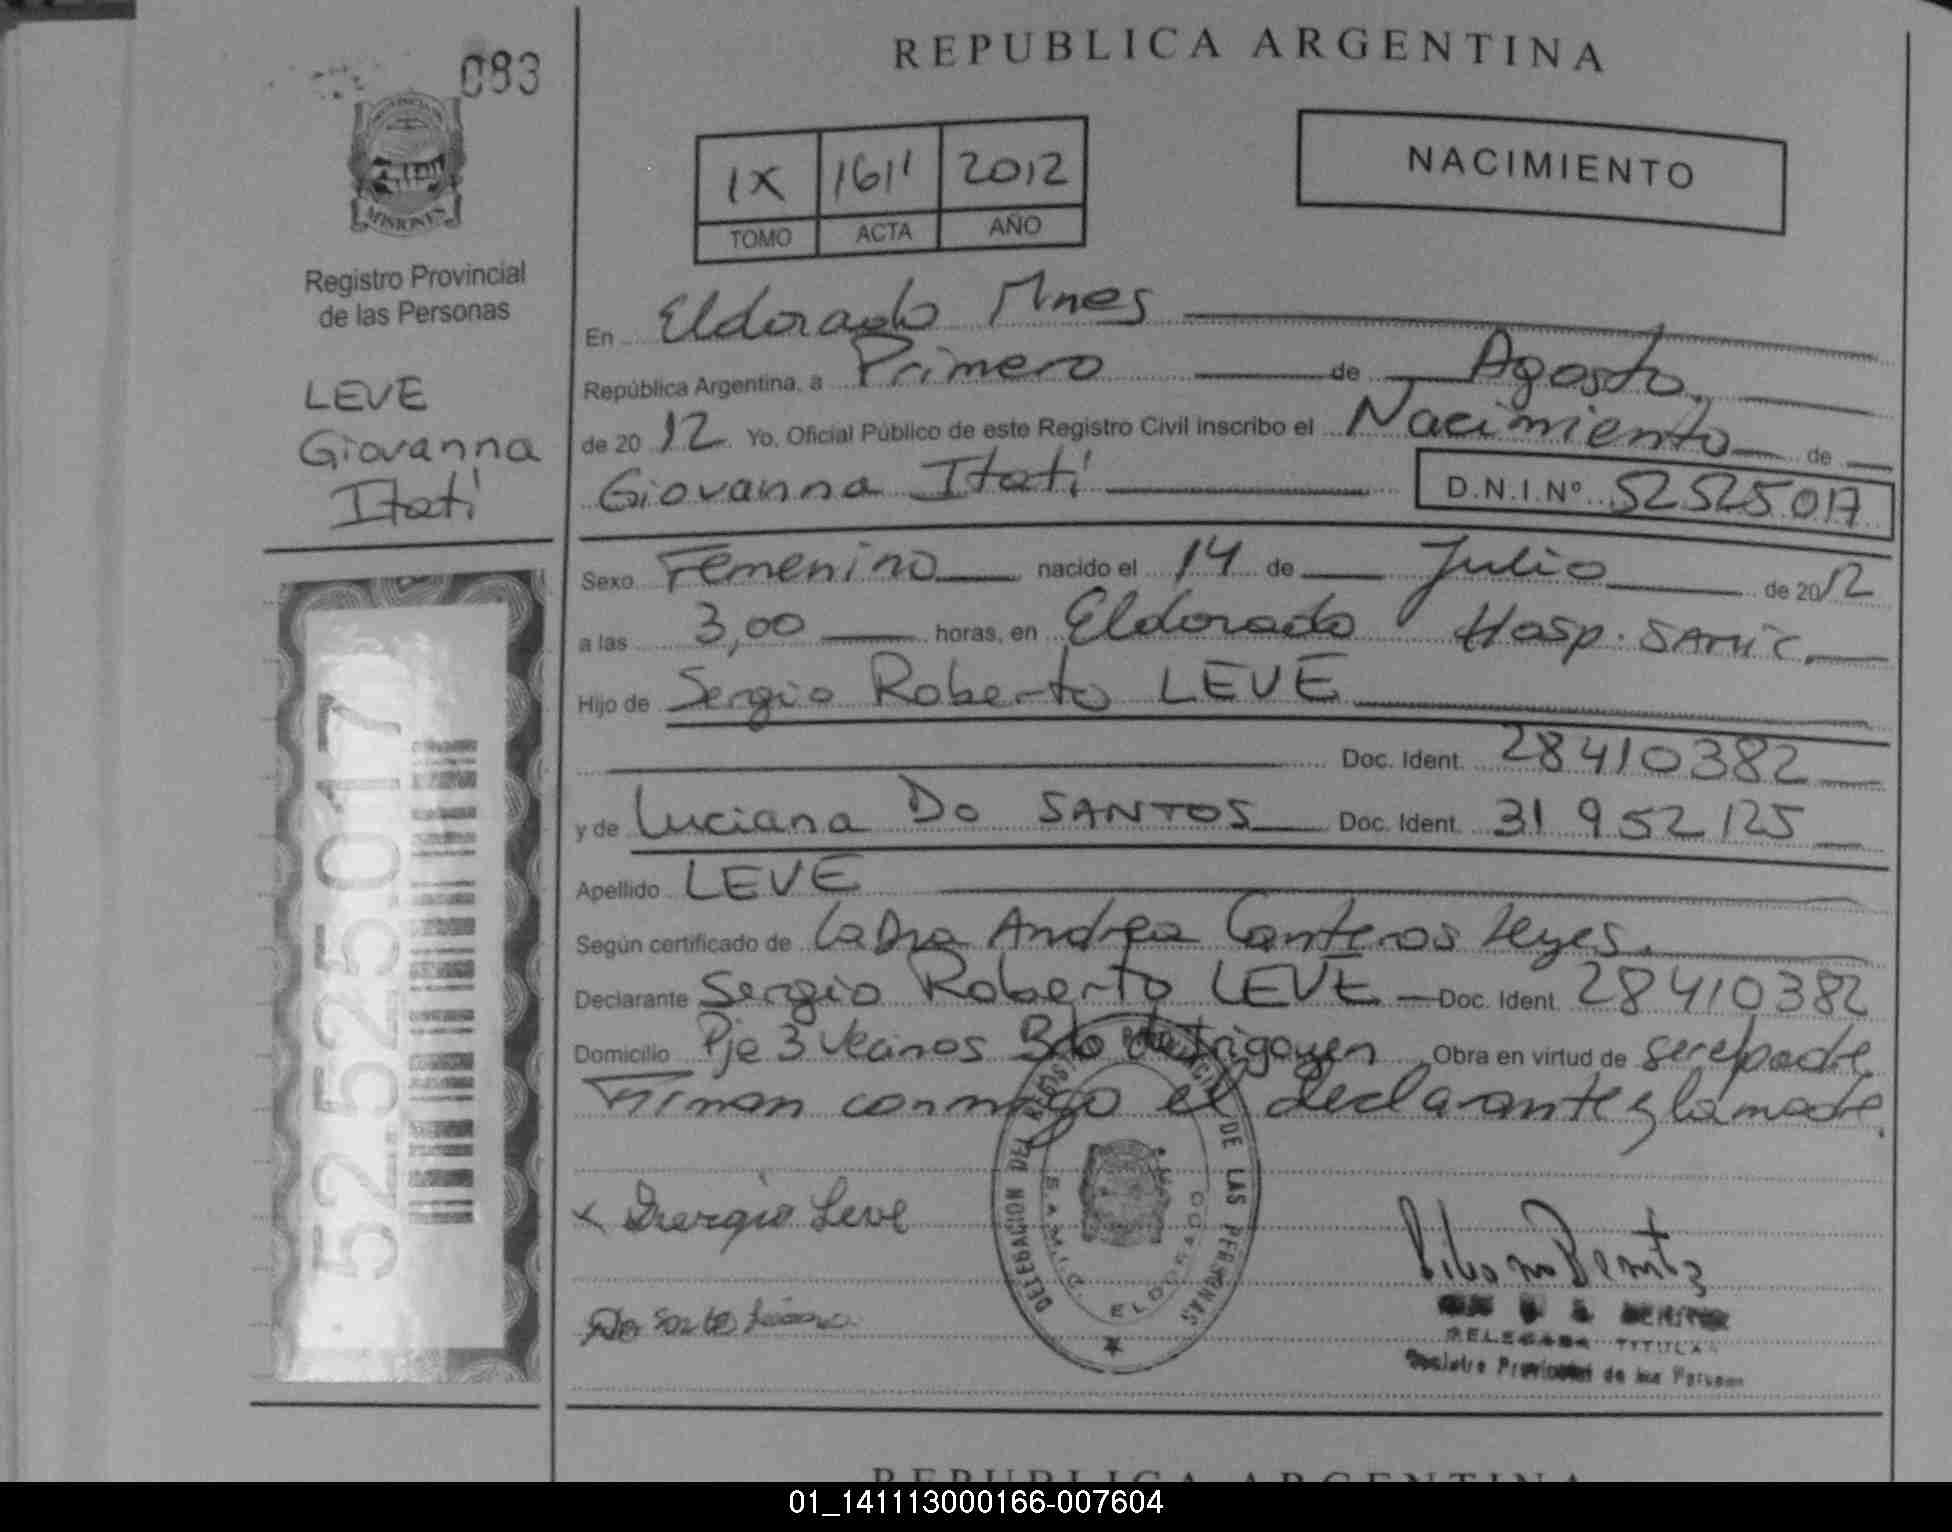 083
REPUBLICA ARGENTINA
PROVINCIA DE
MISIONES
Registro Provincial
de las Personas
LEVE
Giovanna
Itatí
IX 1611 2012
TOMO ACTA AÑO
NACIMIENTO
En Eldorado Mnes
República Argentina, a Primero de Agosto
de 2012 Yo, Oficial Público de este Registro Civil inscribo el Nacimiento de
Giovanna Itatí D.N.I.Nº 52525017
Sexo Femenino nacido el 14 de Julio de 2012
a las 3,00 horas, en Eldorado Hosp. SAMIC.
Hijo de Sergio Roberto LEVE
Doc. Ident. 28410382
y de Luciana Do SANTOS Doc. Ident. 31952125
Apellido LEVE
Según certificado de La Dra Andrea Canteros Leyes.
Declarante Sergio Roberto LEVE Doc. Ident. 28410382
Domicilio Pje 3 Vecinos Bdo de Irigoyen Obra en virtud de ser el padre
Firman conmigo el declarante y la madre.
52525017
Sergio Leve
DELEGACION DEL REGISTRO PROVINCIAL DE LAS PERSONAS
S.A.M.I.C. ELDORADO
BENITEZ
DELEGADA TITULAR
Registro Provincial de las Personas
REPUBLICA ARGENTINA
01_141113000166-007604